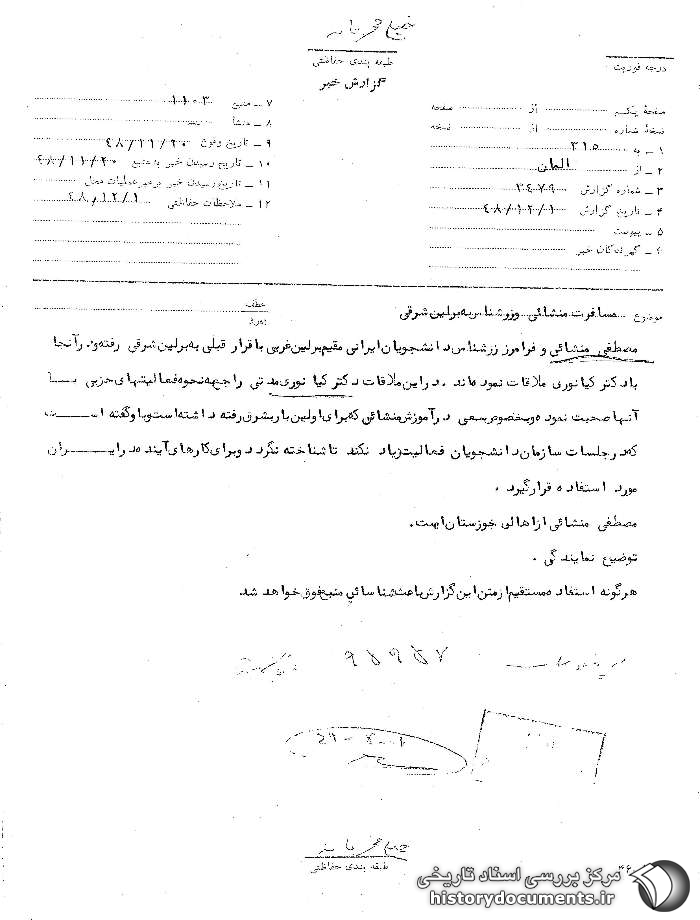 خیلی محرمانه
طبقه بندی حفاظتی
گزارش خبر
درجه فوریت
صفحهٔ یکم از صفحه
نسخهٔ شماره از نسخه
۱ ـ به ۳۱۵
۲ ـ از المان
۳ ـ شماره گزارش ۳۴۷۹
۴ ـ تاریخ گزارش ۴۸/۱۲/۱
۵ ـ پیوست
۶ ـ گیرندگان خبر
۷ ـ منبع ۱۱۰۳
۸ ـ منشأ
۹ ـ تاریخ وقوع ۴۸/۱۱/۲۰
۱۰ ـ تاریخ رسیدن خبر به منبع ۴۸/۱۱/۲۰
۱۱ ـ تاریخ رسیدن خبر به رهبر عملیات محل
۱۲ ـ ملاحظات حفاظتی ۴۸/۱۲/۱
موضوع مسافرت منشائی وزرشناس به برلین شرقی
عطف
پیرو
مصطفی منشائی و فرامرز زرشناس دانشجویان ایرانی مقیم برلین غربی با قرار قبلی به برلین شرقی رفته و در آنجا
با دکتر کیانوری ملاقات نموده اند . در این ملاقات دکتر کیانوری مدتی راجع به نحوه فعالیتهای حزبی با
آنها صحبت نموده و بخصوص سعی در آموزش منشائی که برای اولین بار بشرق رفته داشته است و باو گفته است
که در جلسات سازمان دانشجویان فعالیت زیاد نکند تا شناخته نگردد و برای کارهای آینده در ایران
مورد استفاده قرار گیرد .
مصطفی منشائی از اهالی خوزستان است .
توضیح نمایندگی .
هرگونه استفاده مستقیم از متن این گزارش باعث شناسائی منبع فوق خواهد شد .
خیلی محرمانه
طبقه بندی حفاظتی
مرکز بررسی اسناد تاریخی
historydocuments.ir